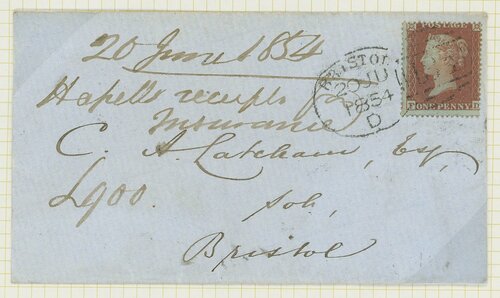 20 June 1854
BRISTOL
20 JU
1854
D
POSTAGE
ONE PENNY
Hapells receipt for
Insurance
C. A. Latcham, Esq,
£900.
Sol,
Bristol